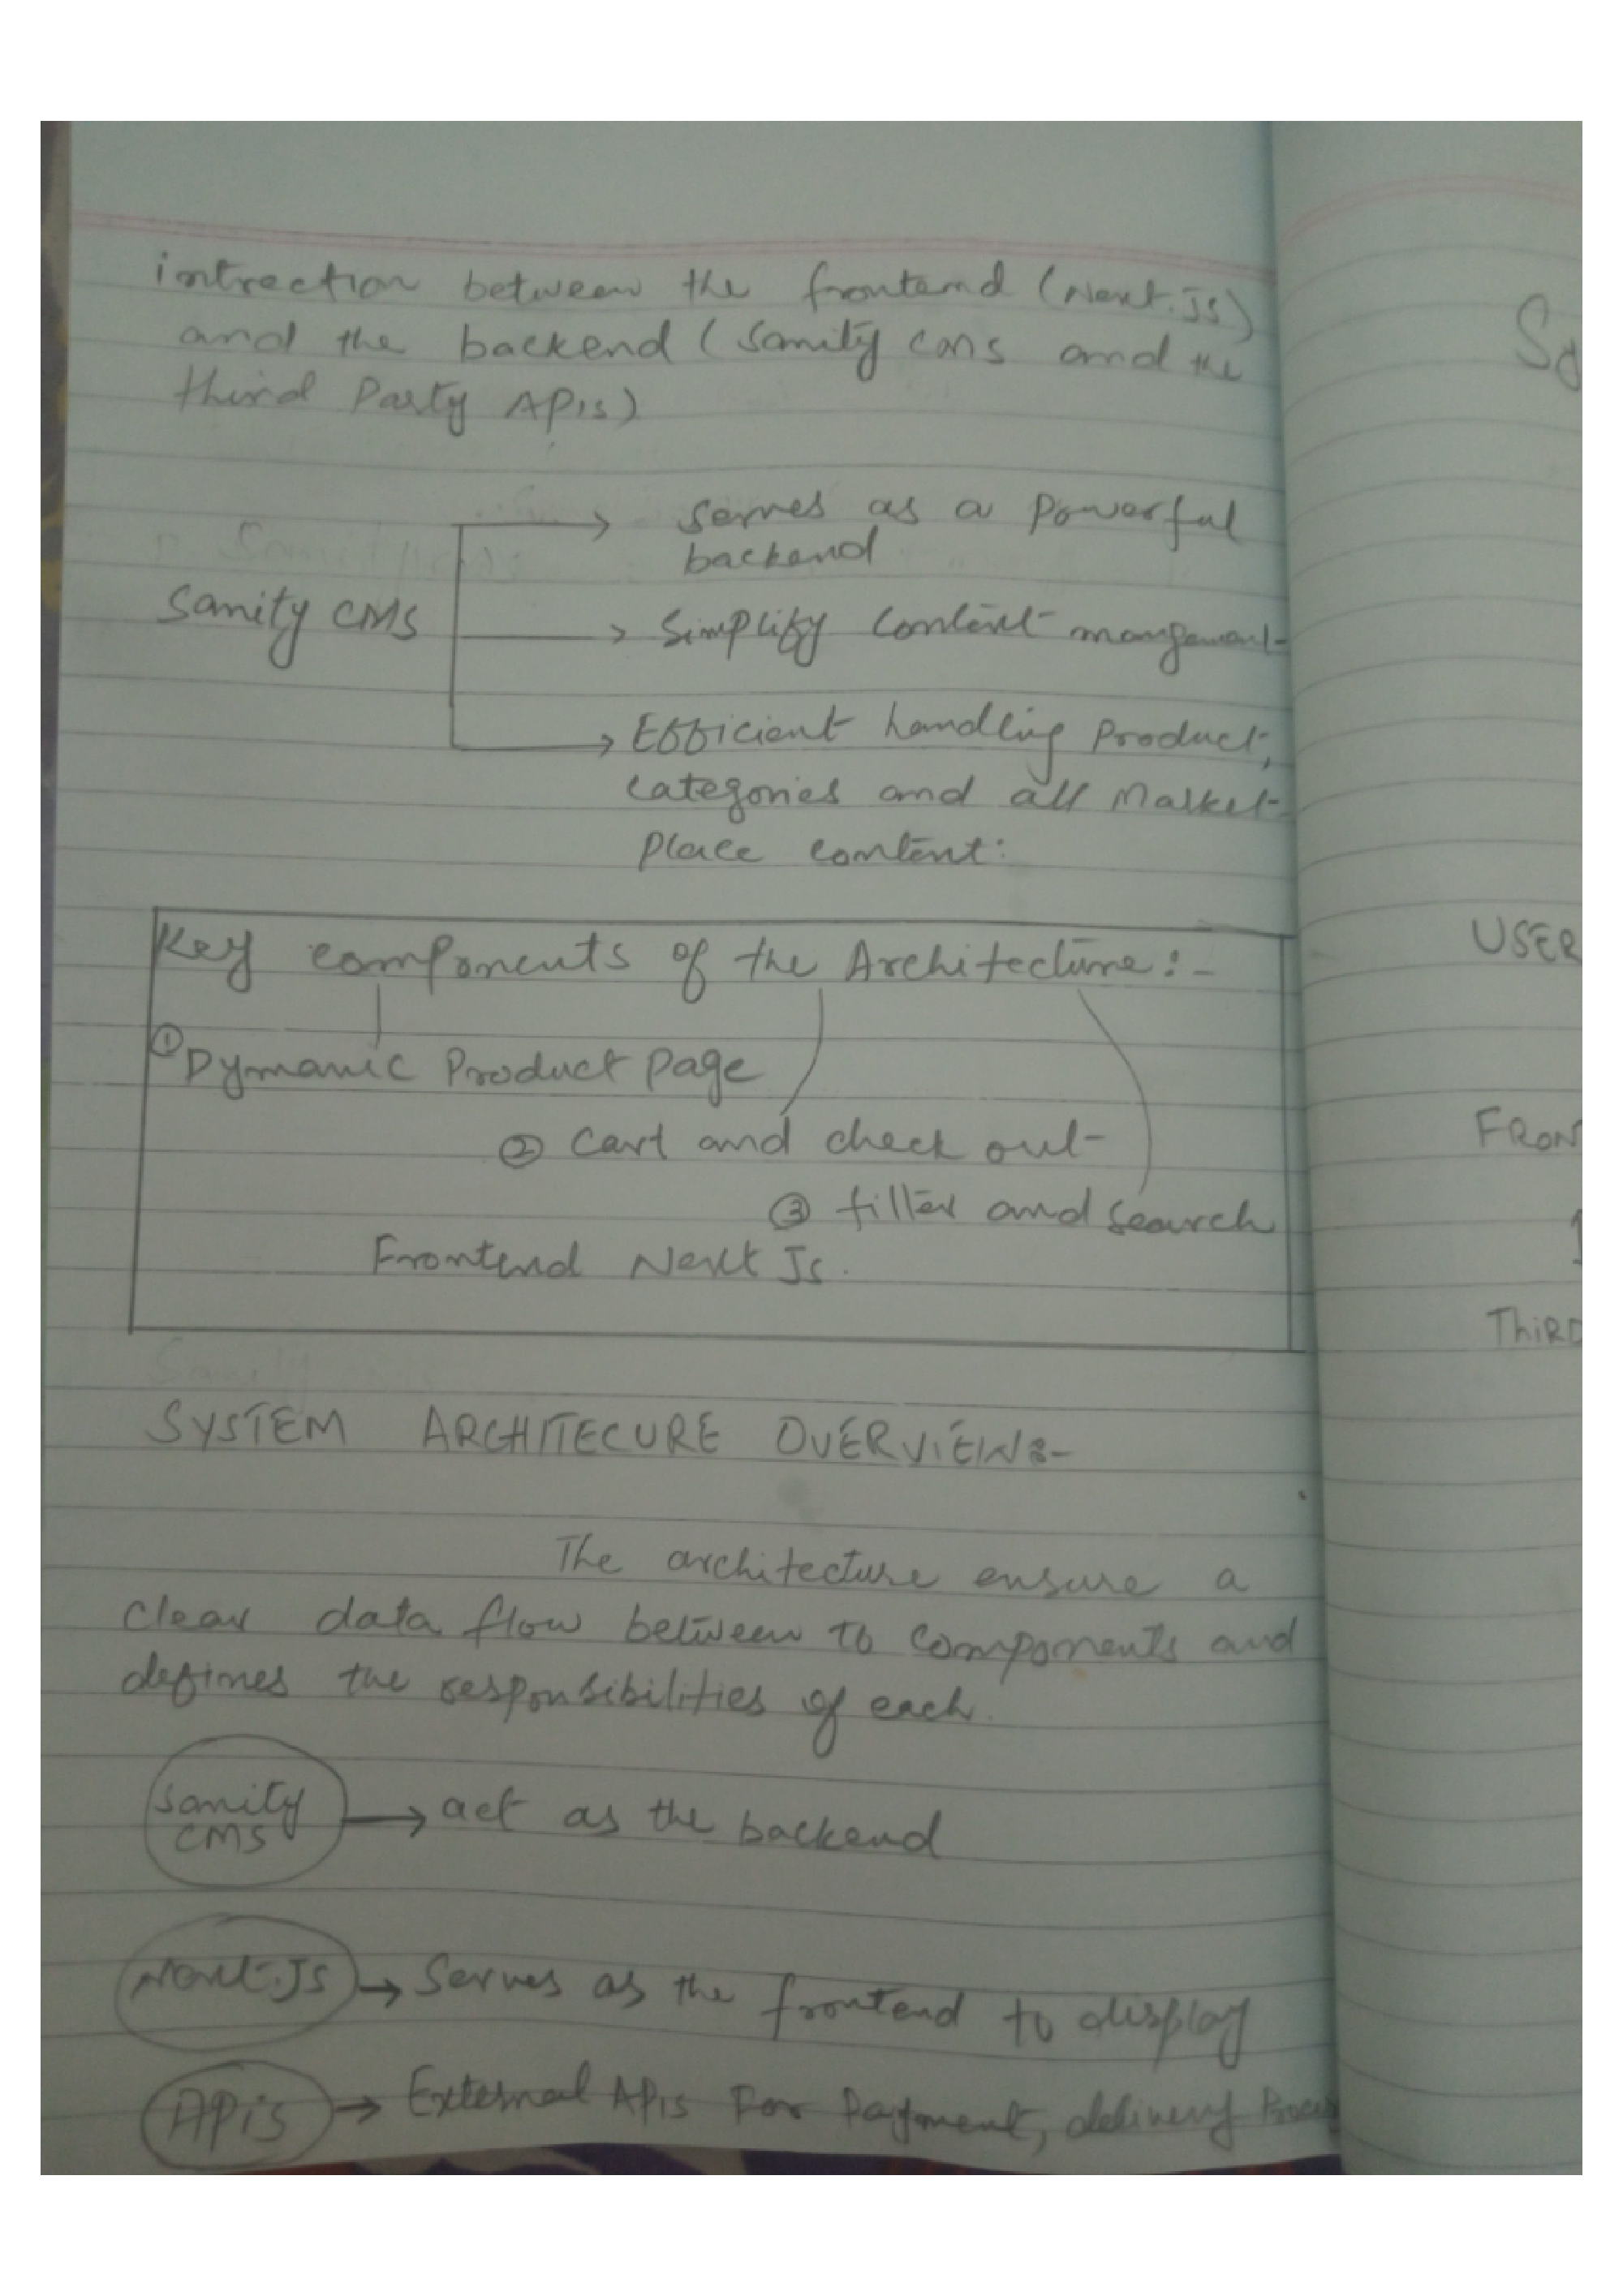 intrection between the frontend (Next.Js)
and the backend (Sanity CMS and the
third Party APIs)
serves as a Powerful
backend
Sanity CMS
Simplify Content mangement
Efficient handling Product,
categories and all Market-
Place content:
Key components of the Architecture:-
① Dymanic Product Page
② Cart and check out
③ filter and search
Frontend Next Js.
SYSTEM ARCHITECURE OVERVIEW:-
The architecture ensure a
clear data flow between to components and
defines the responsibilities of each.
Sanity
CMS → act as the backend
Next.Js → Serves as the frontend to display
APis → External APIs For Payment, delivery
USER
FRON
THIRD